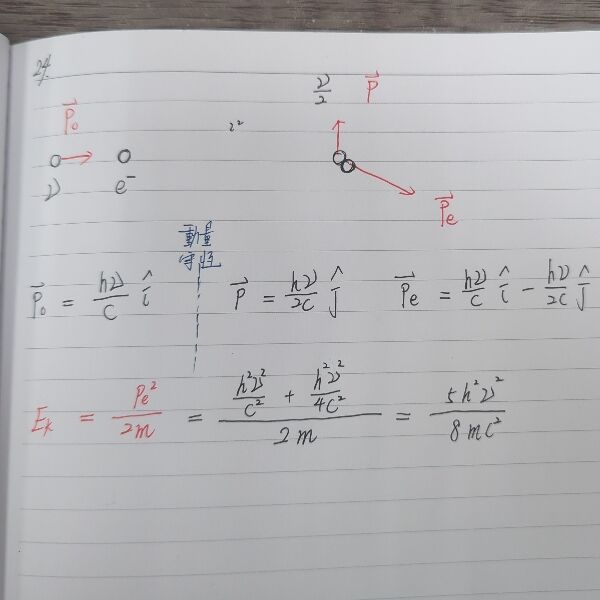 24.
ν/2 P⃗
P⃗₀
2²
ν e⁻
P⃗e
動量
守恆
P⃗₀ = hν/C î P⃗ = hν/2C ĵ P⃗e = hν/C î − hν/2C ĵ
Eₖ = Pe²/2m = (h²ν²/C² + h²ν²/4C²)/2m = 5h²ν²/8mC²